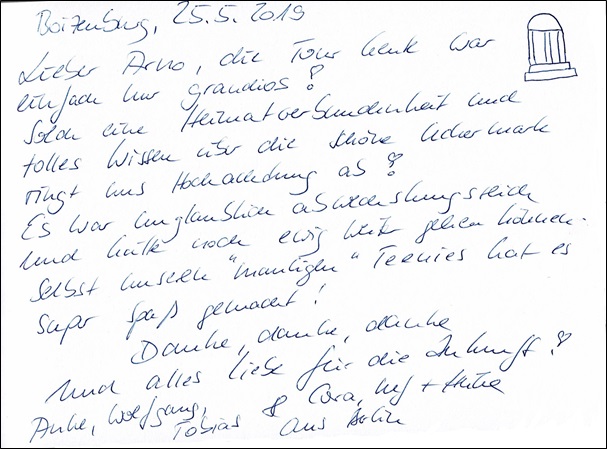 Boitzenburg, 25.5.2019
Lieber Arno, die Tour heute war
einfach nur grandios!
Solch eine Heimatverbundenheit und
tolles Wissen über die schöne Uckermark
ringt uns Hochachtung ab!
Es war unglaublich abwechslungsreich
und hätte noch ewig weiter gehen können.
Selbst unseren "mautigen" Teenies hat es
super Spaß gemacht!
Danke, danke, danke
und alles liebe für die Zukunft!
Anke, Wolfgang, Cora, + Heike
Tobias & aus Berlin